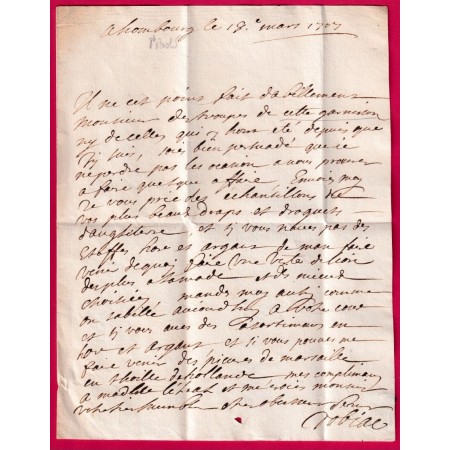 a hombourg le 18e mars 1707
Il ne cet poins fait dabillemens
monsieur des troupes de cette garnison
ny de celles qui y hons été depuis que
jy suis, soiés bien persuadé que je
ne perdré pas les ocasion a vous procurer
a faire quelque affaire Envoiés moy
je vous prie des échantillons de
vos plus beaux draps et droguets
dangleterre et si vous navés pas des
Etoffes hor et argans de man faire
venir de quoy faire Une Veste de soie
des plus alamode et des mieux
choisiées mandés moy ausy comme
on sabille aucourdhuy a Votre cour
et sy vous avés des Assortimens en
hor et argans et si vous pouvés me
faire venir des pieces de
en thoille de hollande mes complimens
a madlle et me croiés monsieur
Votre tres humble et tres obeissant serv